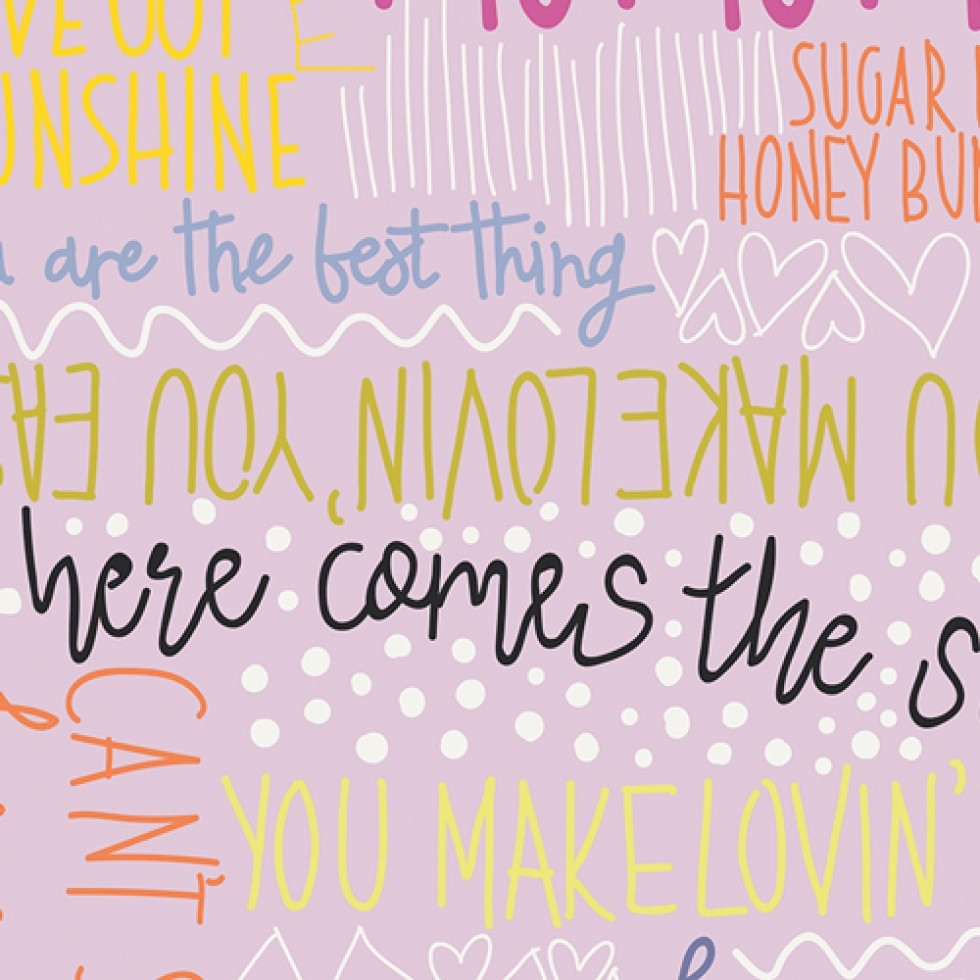 SUNSHINE
SUGAR
HONEY BUN
are the best thing
YOU MAKE LOVIN' YOU EA
here comes the s
CAN'T
YOU MAKE LOVIN'